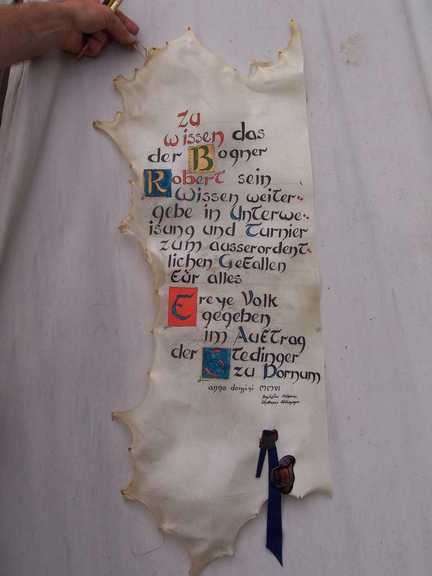 zu
wissen das
der Bogner
Robert sein
Wissen weiter-
gebe in Unterwe-
isung und Turnier
zum ausserordent-
lichen Gefallen
für alles
Freye Volk
gegeben
im Auftrag
der Stedinger
zu Dornum
anno domini MMVI